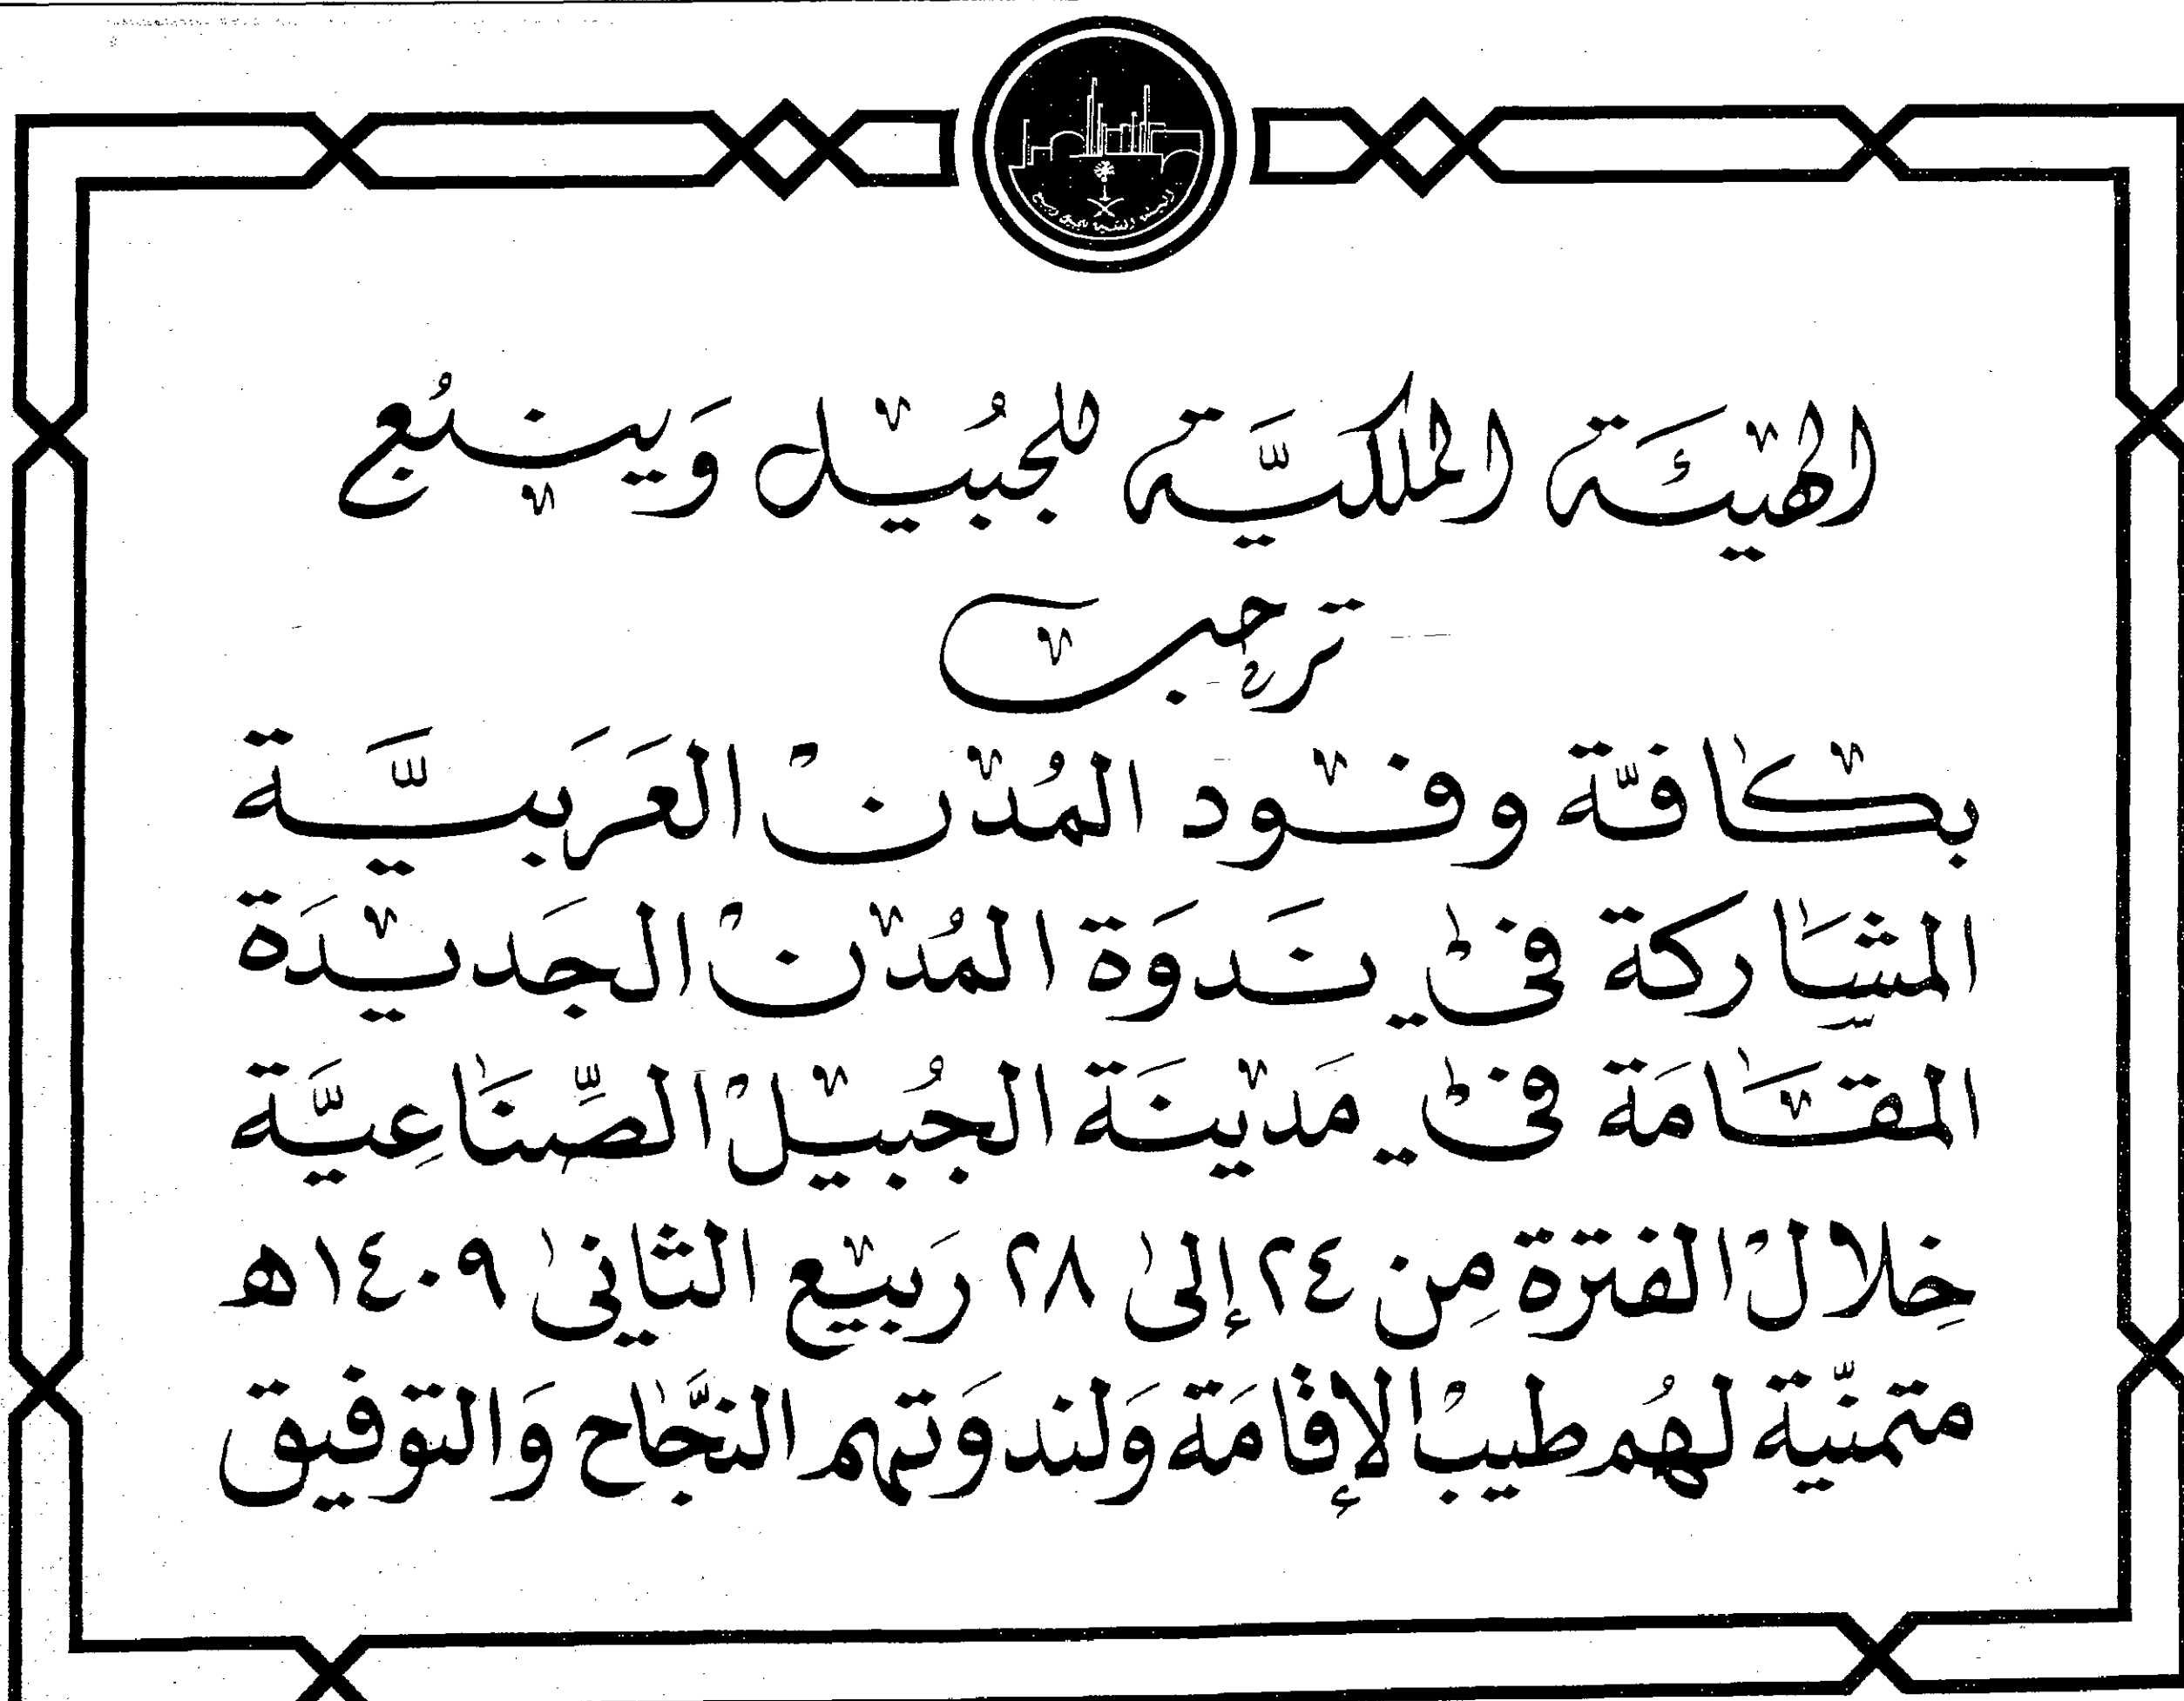 الهيئَة الملكيَّة للجُبيل وَينبُع
ترحب
بكافّة وفود المُدن العَرَبيَّة
المشَاركة في نَدوَة المُدن الجَديدَة
المقَامَة في مَدينَة الجُبيل الصِّنَاعِيَّة
خِلال الفترة مِن ٢٤ إلى ٢٨ رَبيع الثاني ١٤٠٩هـ
متمنّية لهُم طيب الإقامَة وَلندوَتهم النَّجاح وَالتوفيق